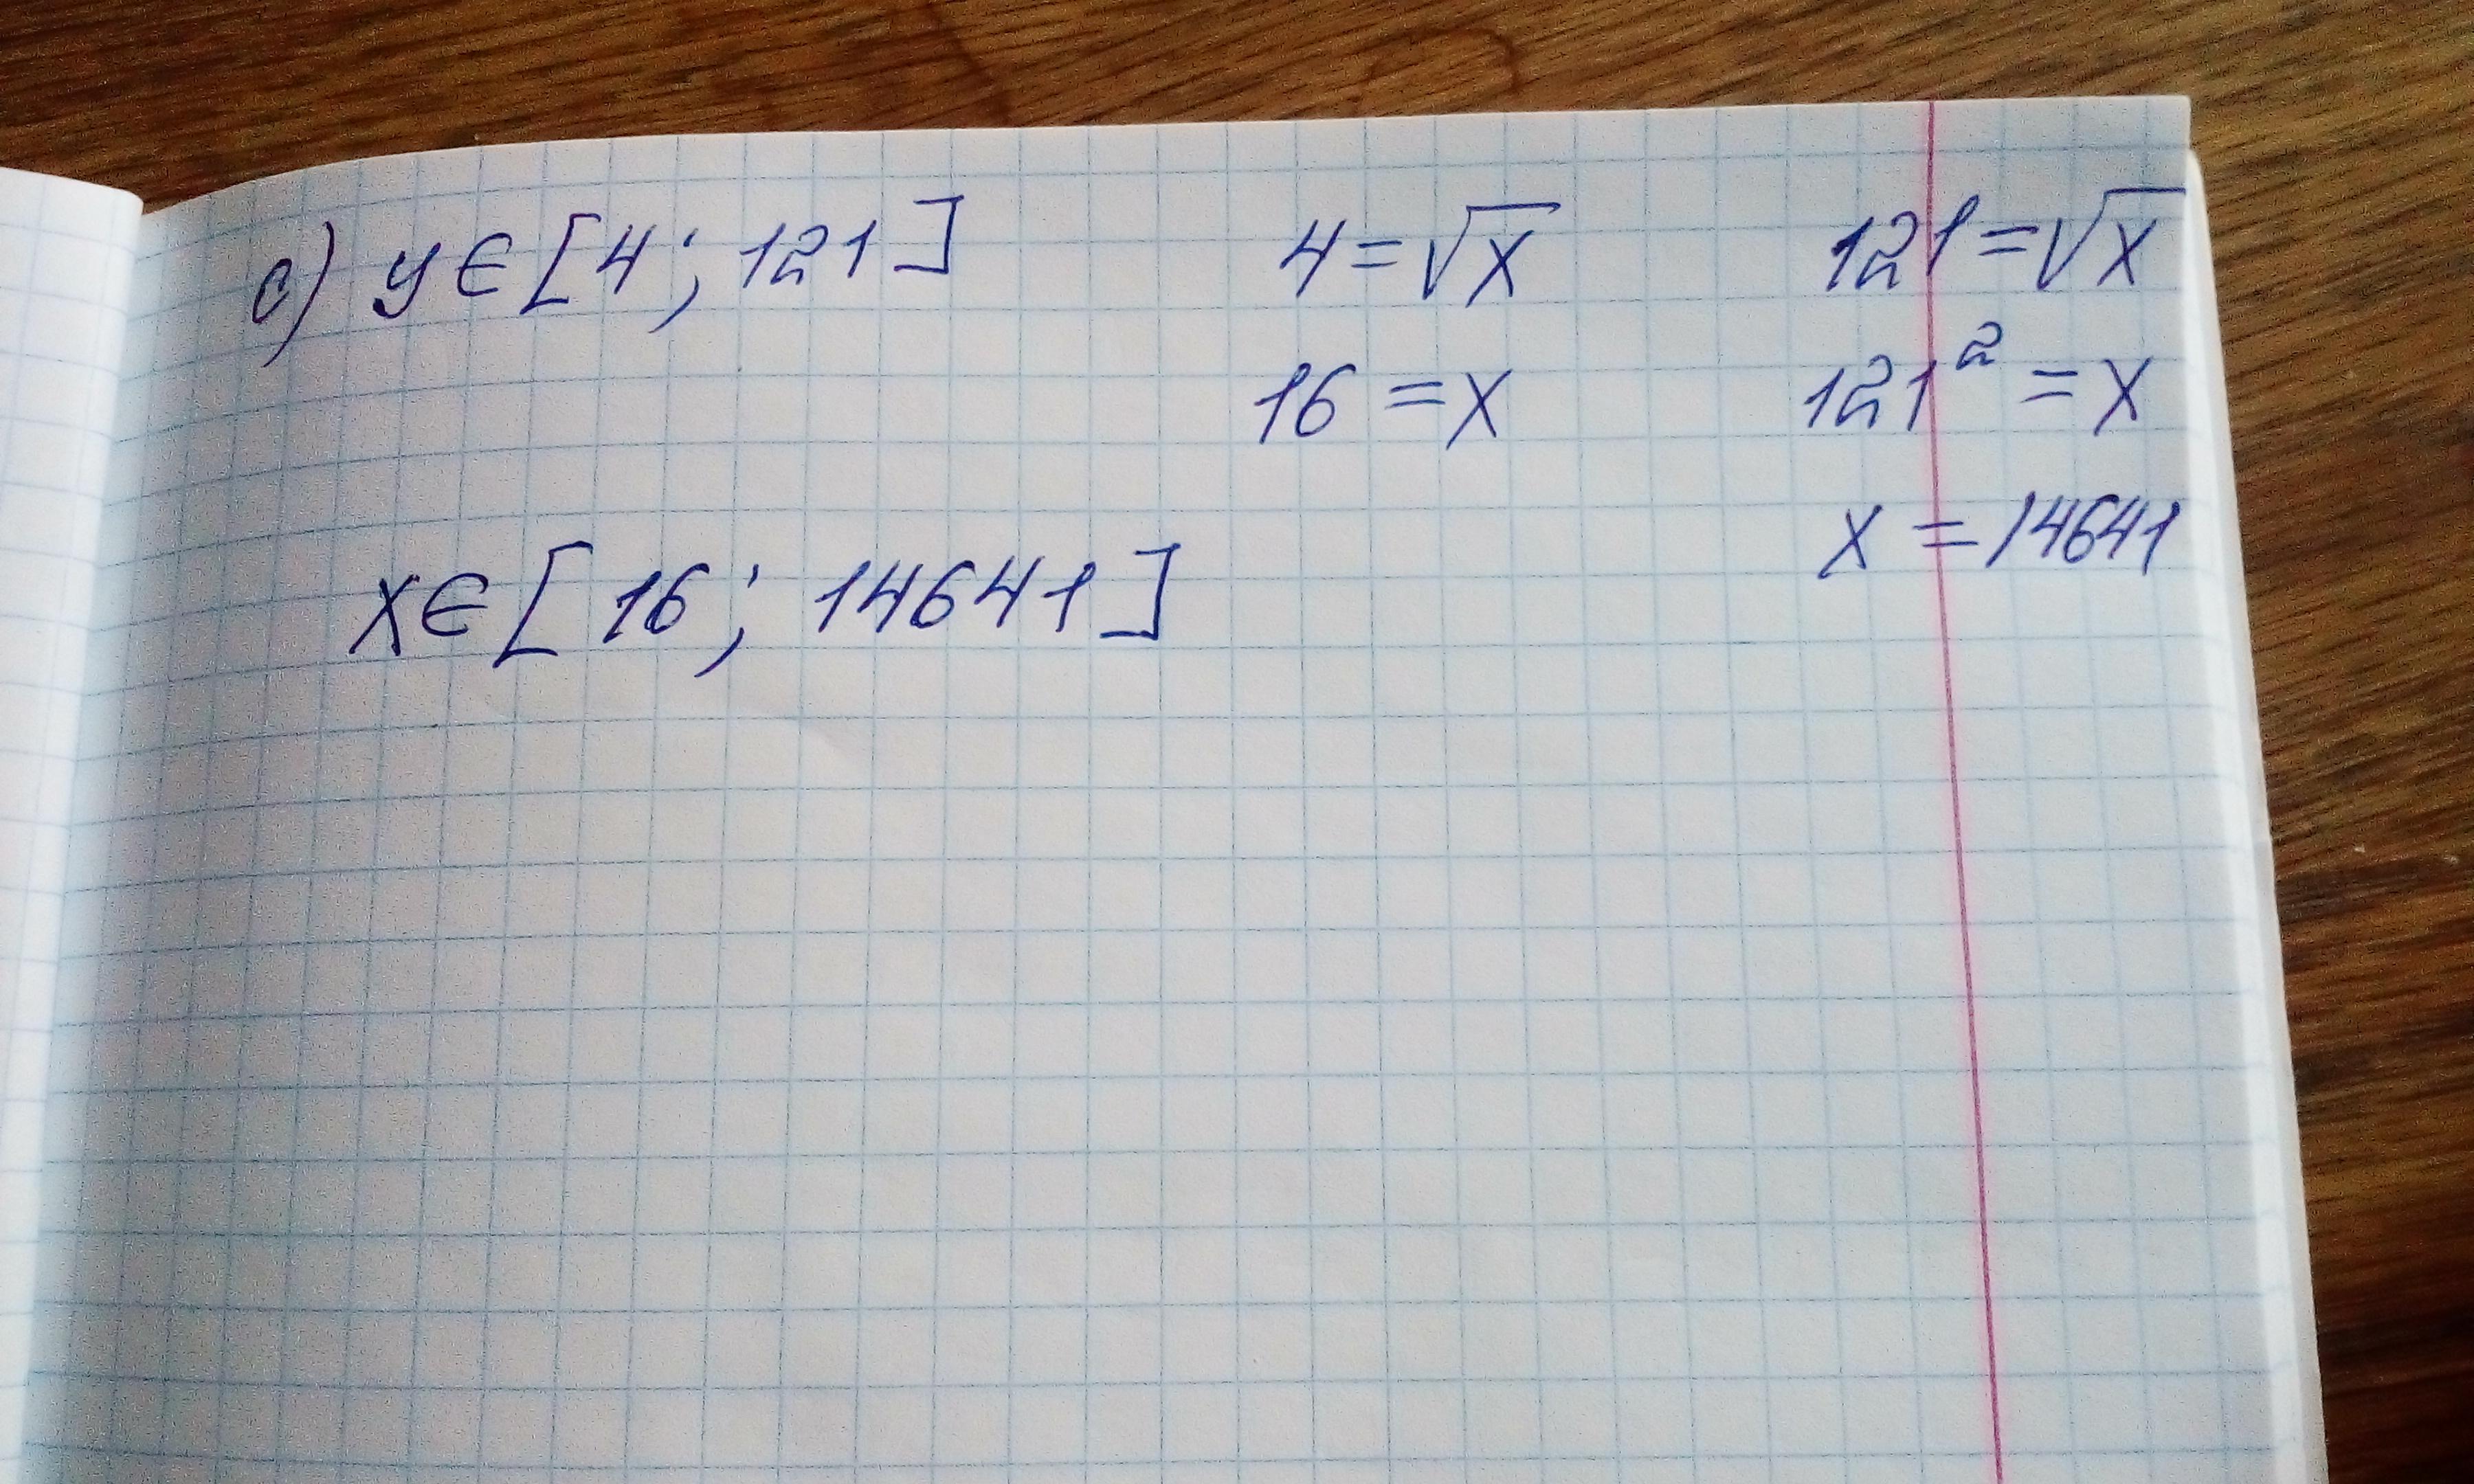 c) y ∈ [4; 121] 4 = √x 121 = √x
16 = x 121² = x
x = 14641
x ∈ [16; 14641]